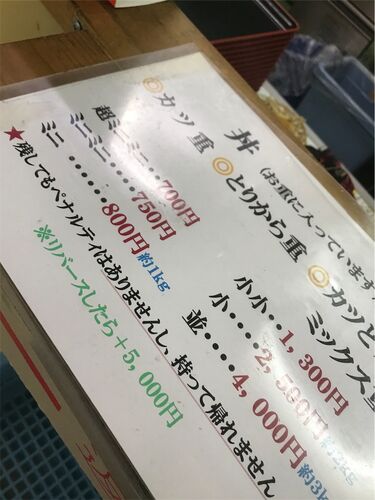 丼（お重に入っています
◎カツ重 ◎とりから重 ◎カツと
ミックス重
超ミニミニ‥700円
ミニミニ‥‥750円
ミニ‥‥‥800円 約1kg
小小‥1,300円
小‥‥2,500円
並‥‥4,000円 約3k
★残してもペナルティはありませんし、持って帰れません
※リバースしたら＋5,000円